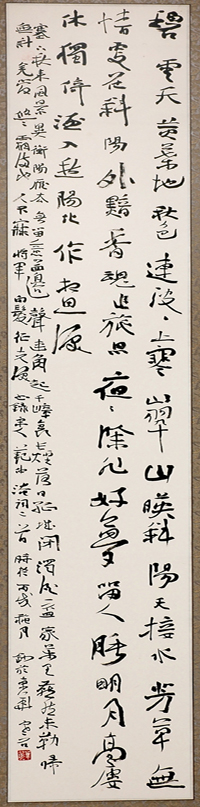 碧雲天黃葉地秋色連波、上寒翠山暎斜陽天接水芳草無
情更在斜陽外黯鄉魂追旅思夜、除非好夢留人睡明月高樓
休獨倚酒入愁腸化作相思淚
塞下秋來風景異衡陽雁去無留意四面邊聲連角起千嶂裏長煙落日孤城閉濁酒一盃家萬里燕然未勒歸
無計羌管悠、霜滿地人不寐將軍白髮征夫淚 錄宋范仲淹詞二首 時於丙戌